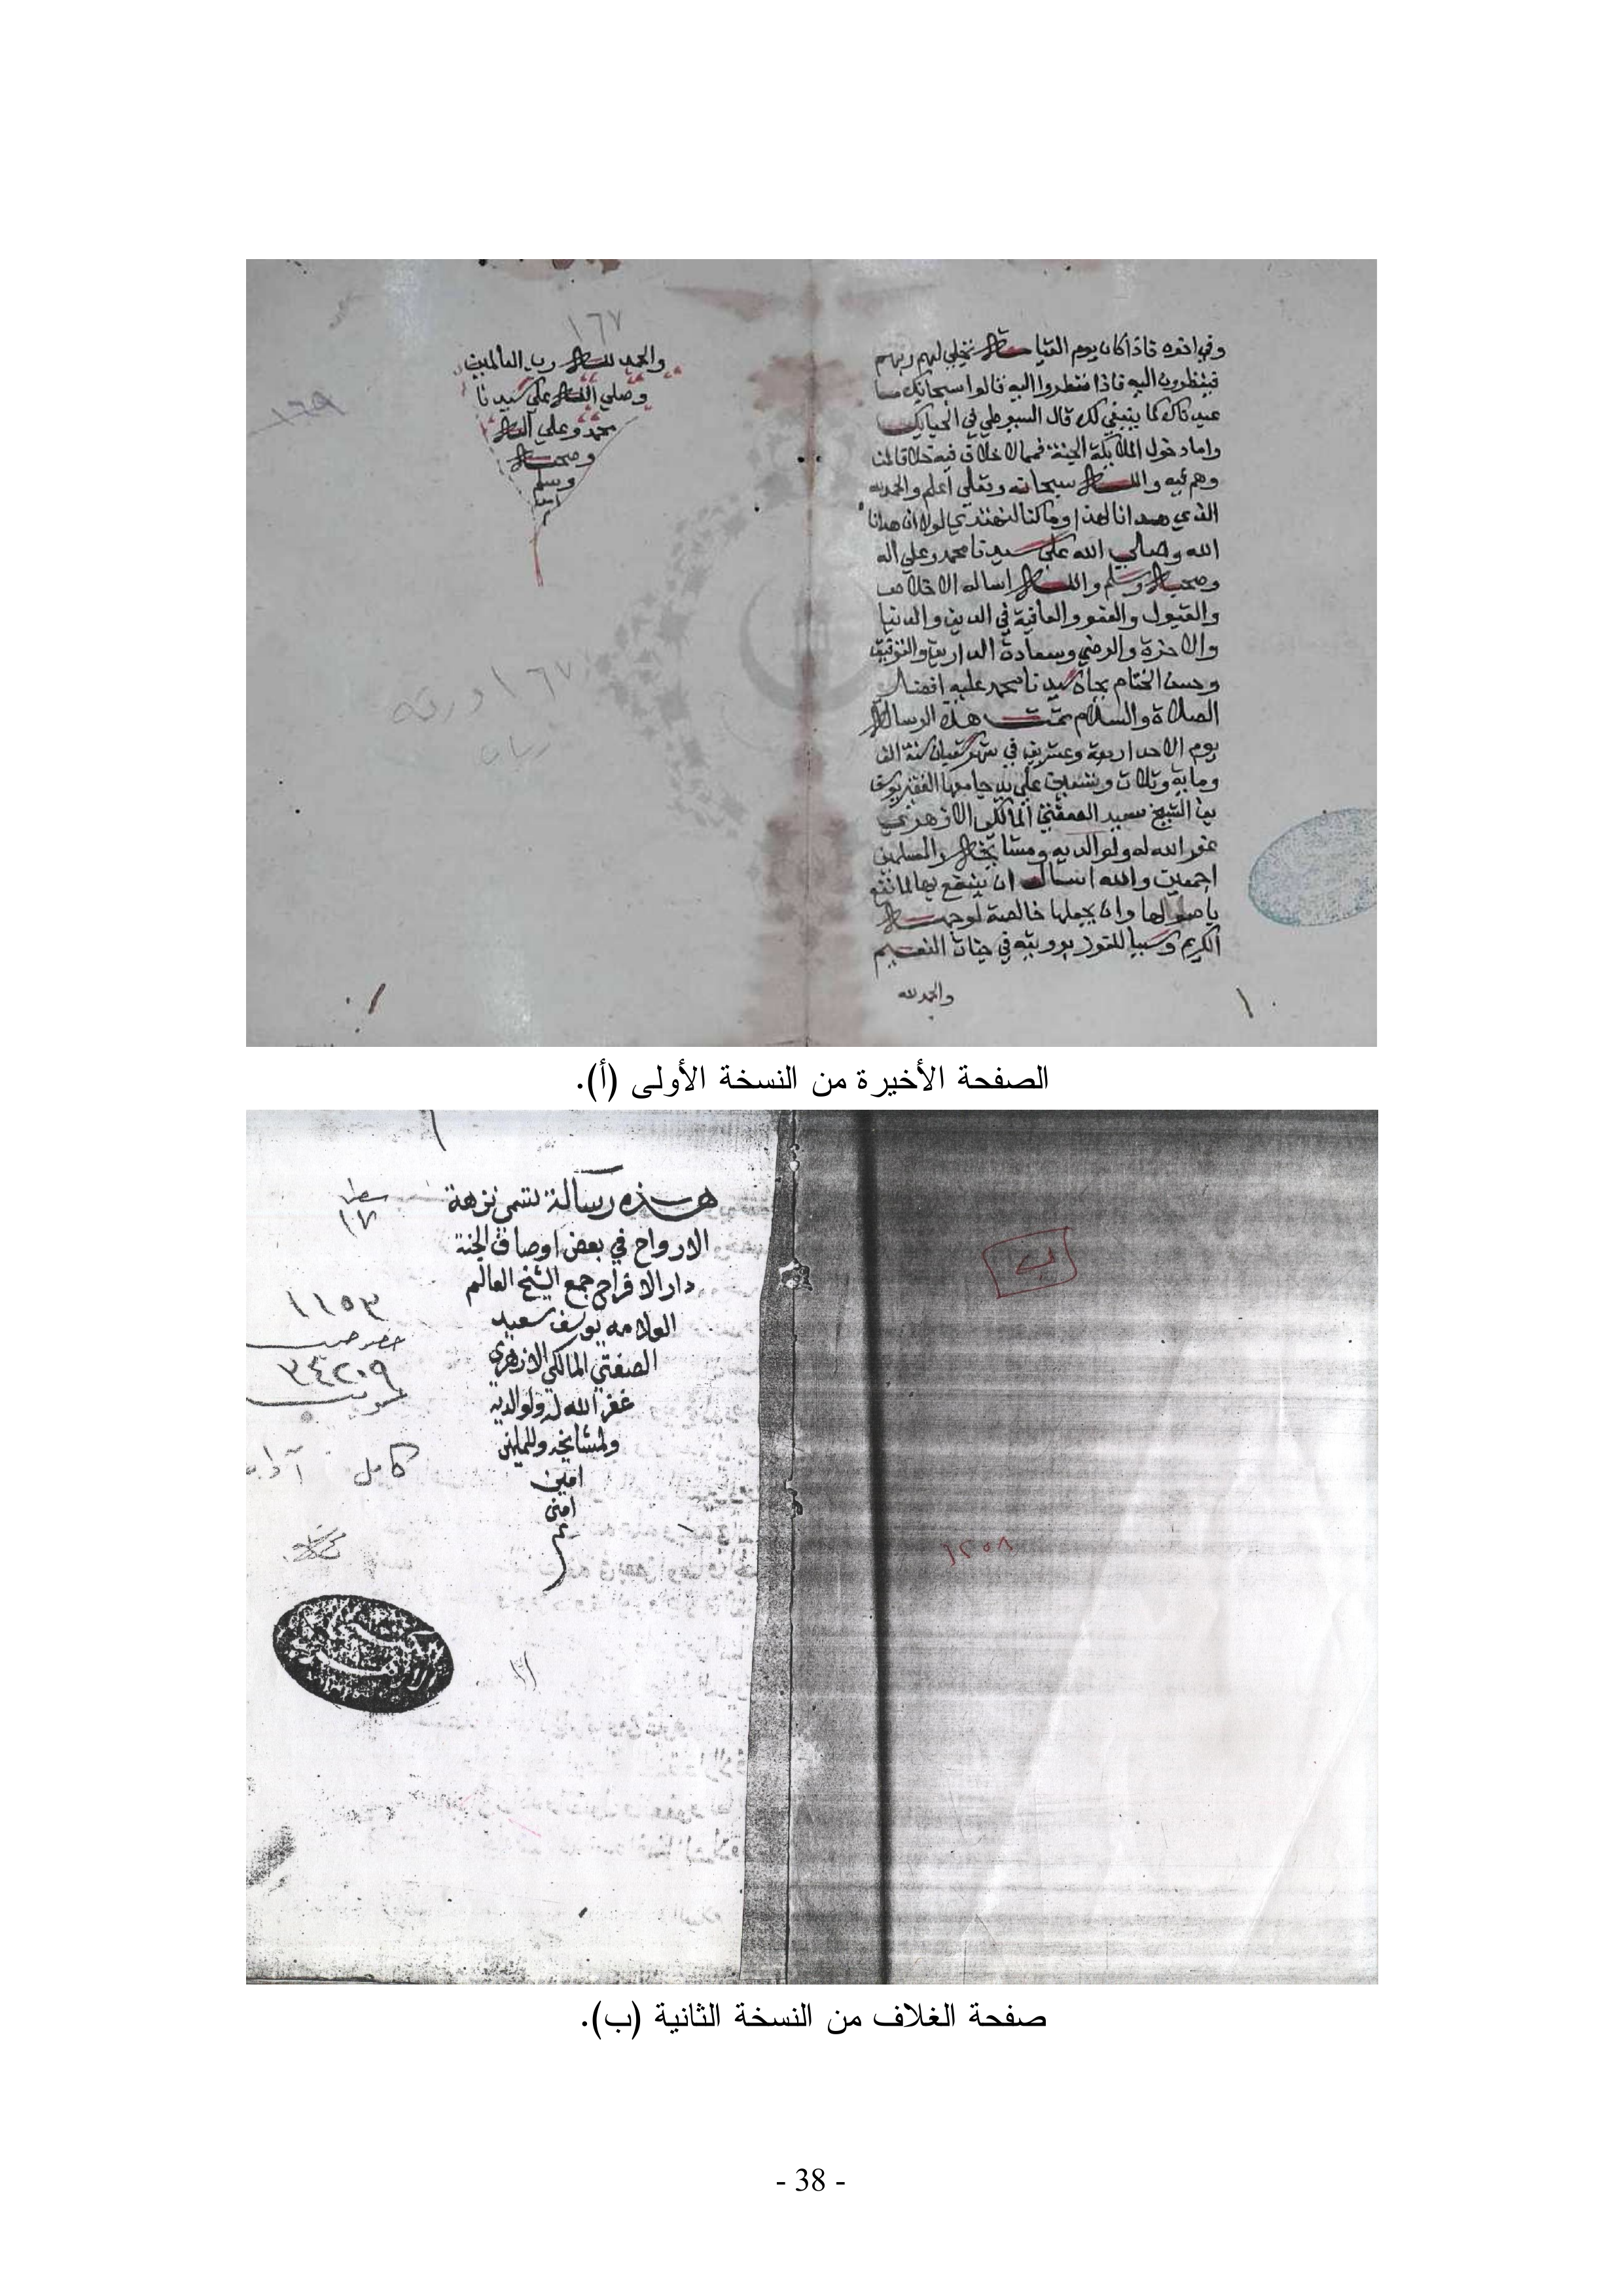 وفي اخره فاذا كان يوم القيامة تجلي لهم ربهم
فينظرون اليه فاذا نظروا اليه قالوا سبحانك ما
عبدناك كما ينبغي لك قال السيوطي في الحبايك
واما دخول الملائكة الجنة فمما لا خلاف فيه
وهم فيه والله سبحانه وتعالي اعلم والحمد لله
الذي هدانا لهذا وما كنا لنهتدي لولا ان هدانا
الله وصلي الله علي سيدنا محمد وعلي اله
وصحبه وسلم والله اساله الاخلاص
والقبول والعفو والعافية في الدين والدنيا
والاخرة والرضي وسعادة الدارين والتوفيق
وحسن الختام بجاه سيدنا محمد عليه افضل
الصلاة والسلام تمت هذه الرسالة
يوم الاحد اربعة وعشرين في شهر شعبان سنة الف
وماية وثلاث وتسعين علي يد جامعها الفقير يوسف
بن الشيخ سعيد الصفتي المالكي الازهري
غفر الله له ولوالديه ومشايخه والمسلمين
اجمعين والله اسال ان ينفع بها كما نفع
باصولها وان يجعلها خالصة لوجهه
الكريم وسببا للفوز برويته في جنات النعيم
والحمد لله
١٦٧
والحمد لله رب العالمين
وصلي الله علي سيدنا
محمد وعلي اله
وصحبه
وسلم
١٦٩
١٦٧ ورقة
الصفحة الأخيرة من النسخة الأولى (أ).
هذه رسالة تسمي نزهة
الارواح في بعض اوصاف الجنة
دار الافراح جمع الشيخ العالم
العلامه يوسف سعيد
الصفتي المالكي الازهري
غفر الله له ولوالديه
ولمشايخه وللمسلمين
امين
امين
١٧
١١٥٣
٣٤٢٠٩
كامل
صفحة الغلاف من النسخة الثانية (ب).
- 38 -